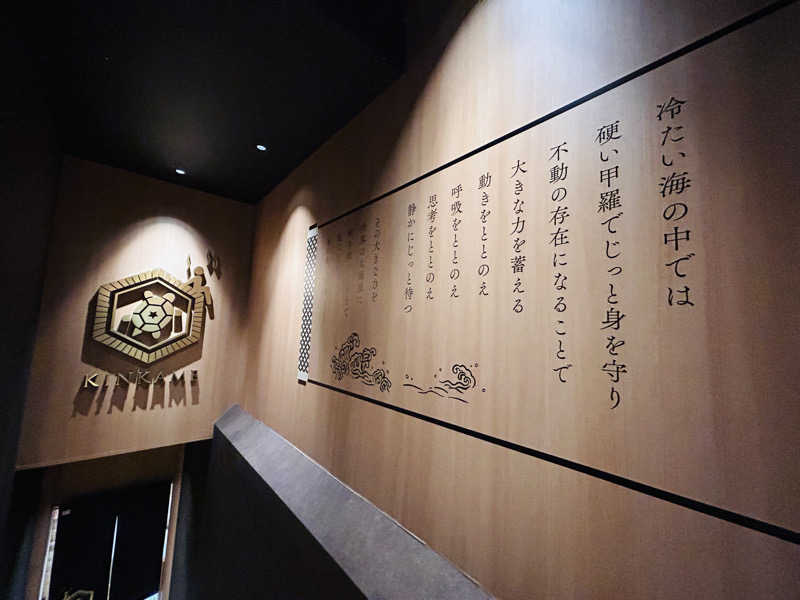 冷たい海の中では
硬い甲羅でじっと身を守り
不動の存在になることで
大きな力を蓄える
動きをととのえ
呼吸をととのえ
思考をととのえ
静かにじっと待つ
その大きな力を
KINKAME